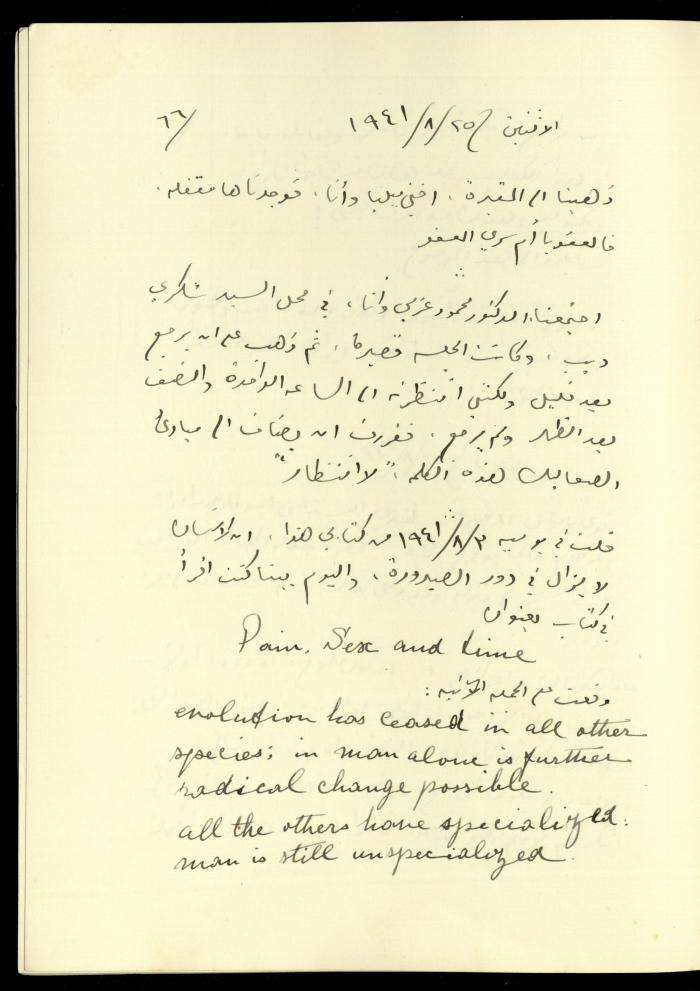 الاثنين ٢٥/٨/١٩٤١ ٦٦/
ذهبنا الى المقبرة، اختي ميليا وأنا، فوجدناها مقفله.
فالعفو يا أم سري العفو
اجتمعنا، الدكتور محمود عزمي وأنا، في محل السيد شكري
ديب، وكانت الجلسه قصيرة، ثم ذهب على ان يرجع
بعد قليل ولكنني انتظرته الى الساعه الواحدة والنصف
بعد الظهر ولم يرجع، فقررت ان يضاف الى مبادئ
الصعاليك هذه الكلمه، "لا انتظار"
قلت في يوميه ٣/٨/١٩٤١ من كتابي هذا، ان الانسان
لا يزال في دور الصيرورة، واليوم بينا كنت اقرأ
في كتاب بعنوان
Pain, Sex and time
وقعت على الجمله الآتيه:
evolution has ceased in all other
species; in man alone is further
radical change possible.
all the others have specialized.
man is still unspecialized.